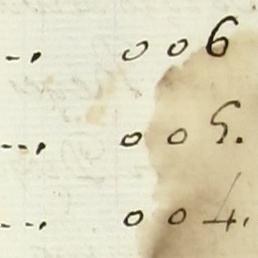 --. 0 0 6
---. 0 0 5.
---. 0 0 4.